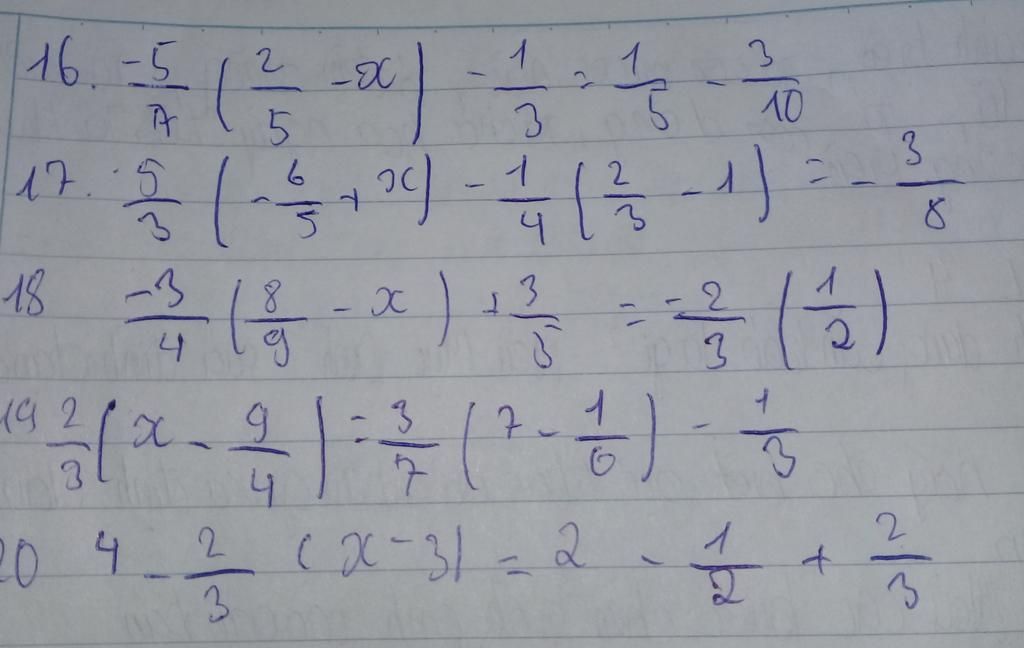 16. -5/7 (2/5 - x) - 1/3 = 1/5 - 3/10
17. 5/3 (-6/5 + x) - 1/4 (2/3 - 1) = -3/8
18 -3/4 (8/9 - x) + 3/5 = -2/3 (1/2)
19 2/3 (x - 9/4) = 3/7 (7 - 1/6) - 1/3
20 4 - 2/3 (x - 3) = 2 - 1/2 + 2/3